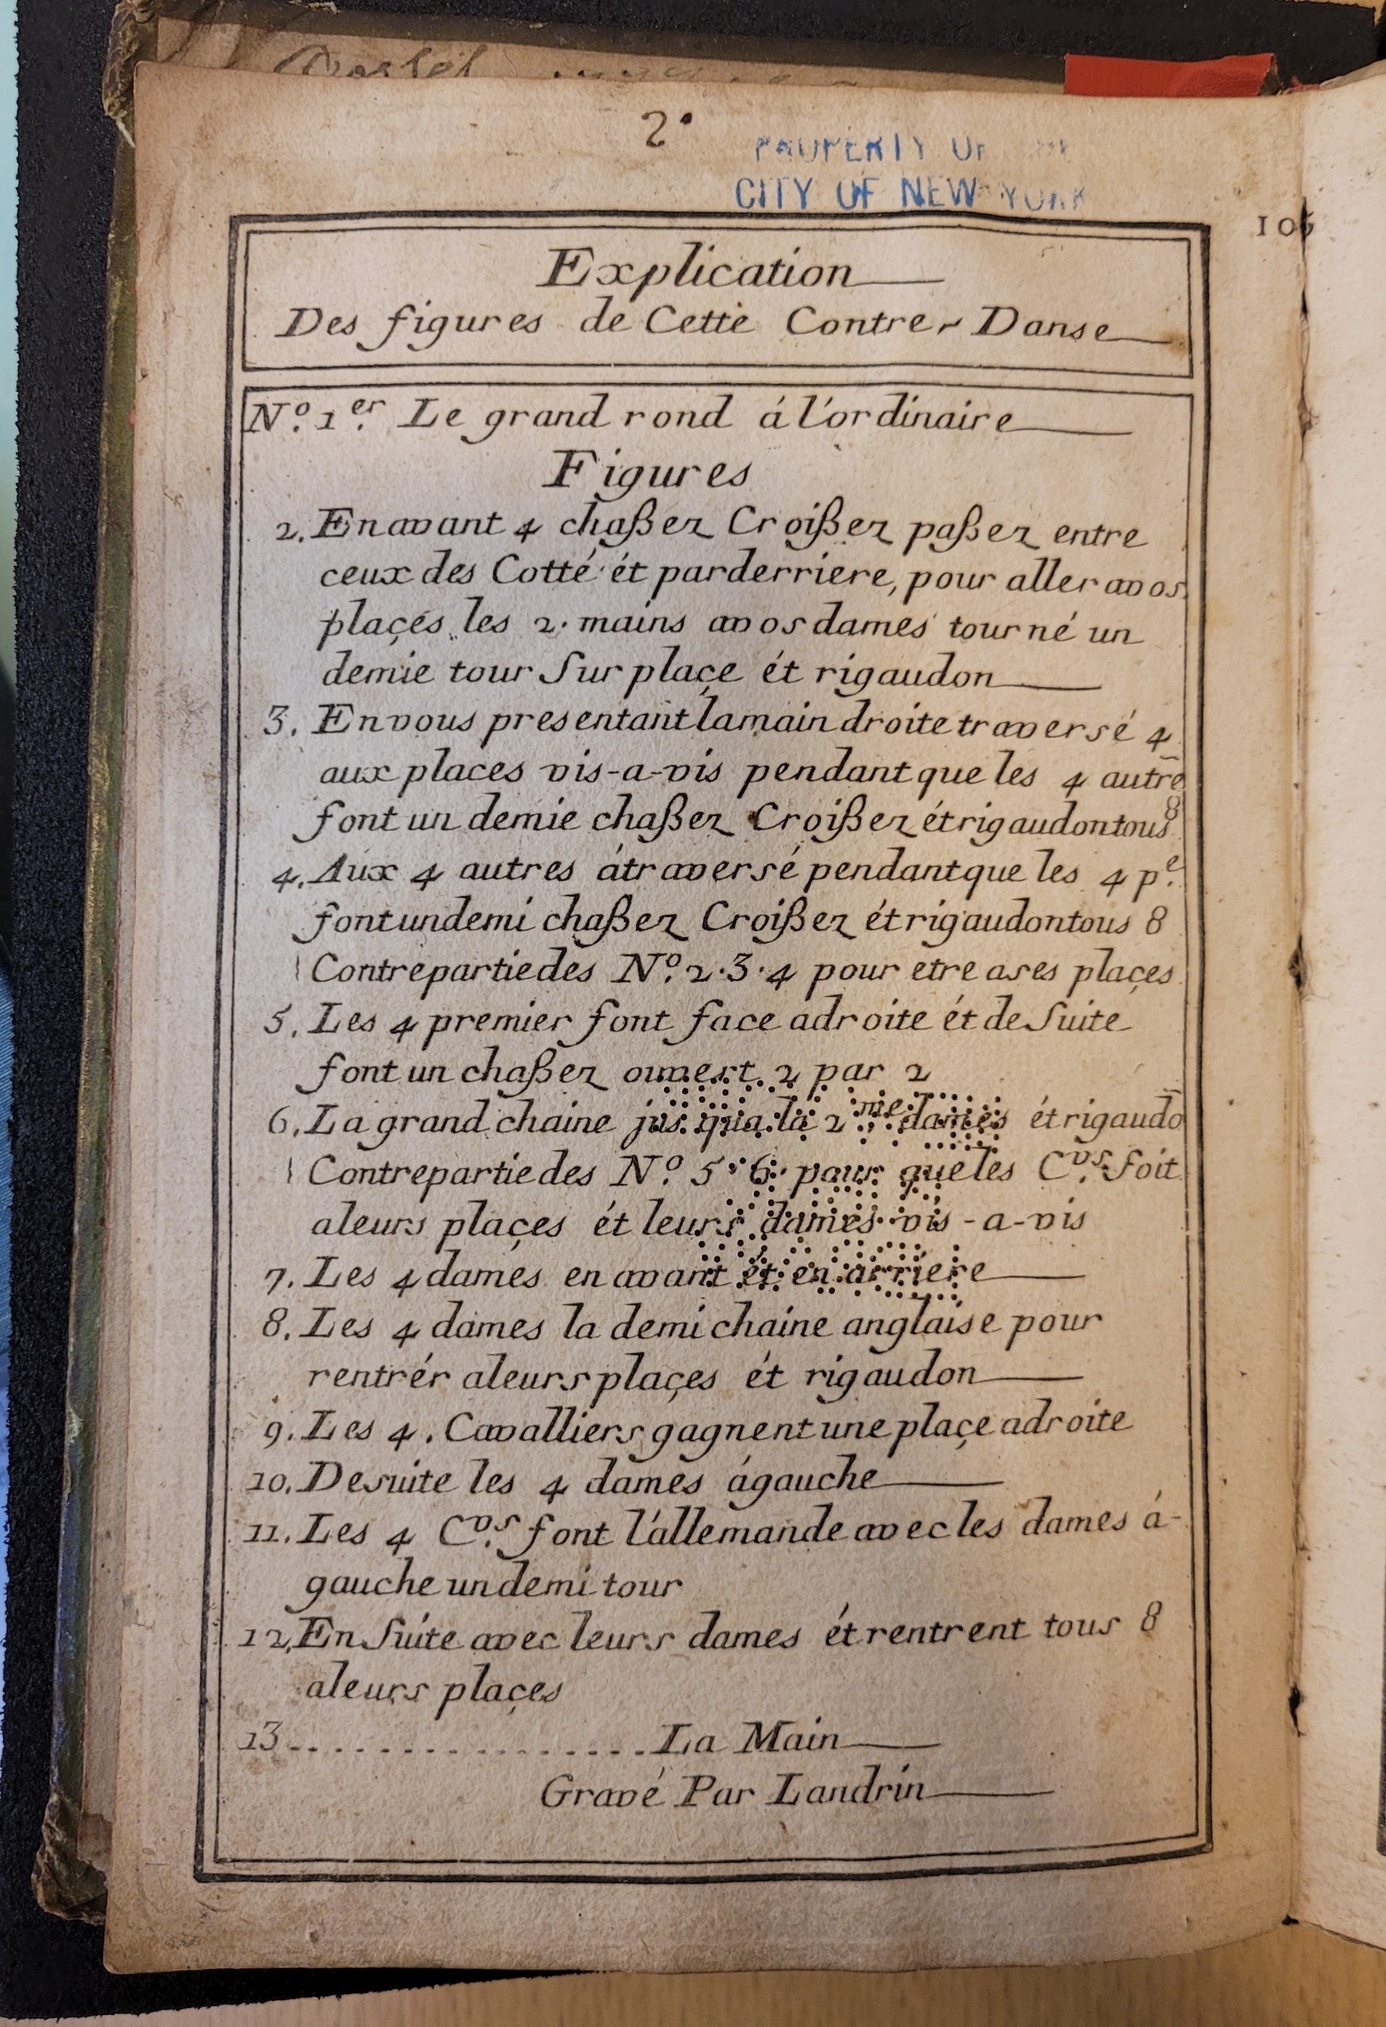 2.
PROPERTY OF THE
CITY OF NEW YORK
Explication
Des figures de Cette Contre-Danse
N.º 1.er Le grand rond á l'ordinaire
Figures
2. En avant 4 chaßez Croißez paßez entre
ceux des Cotté ét par derriere, pour aller a vos
plaçés les 2. mains a vos dames tourné un
demie tour Sur plaçe ét rigaudon
3. En vous presentant la main droite traversé 4
aux places vis-a-vis pendant que les 4 autrē
font un demie chaßez Croißez ét rigaudon tous 8
4. Aux 4 autres á traversé pendant que les 4 p.e
font un demi chaßez Croißez ét rigaudon tous 8
Contrepartie des N.º 2.3.4 pour etre a ses plaçes
5. Les 4 premier font face a droite ét de Suite
font un chaßez ouvert 2 par 2
6. La grand chaine jus qua la 2me dames ét rigaudō
Contrepartie des N.º 5.6. pour que les C.vs Soit
a leurs plaçes ét leurs dames vis-a-vis
7. Les 4 dames en avant ét en arriere
8. Les 4 dames la demi chaine anglaise pour
rentrér a leurs plaçes ét rigaudon
9. Les 4. Cavalliers gagnent une plaçe a droite
10. De suite les 4 dames á gauche
11. Les 4 C.vs font l'allemande avec les dames á-
gauche un demi tour
12. En Suite avec leurs dames ét rentrent tous 8
a leurs plaçes
13 . . . . . . . . . . . . . . . . La Main
Gravé Par Landrin